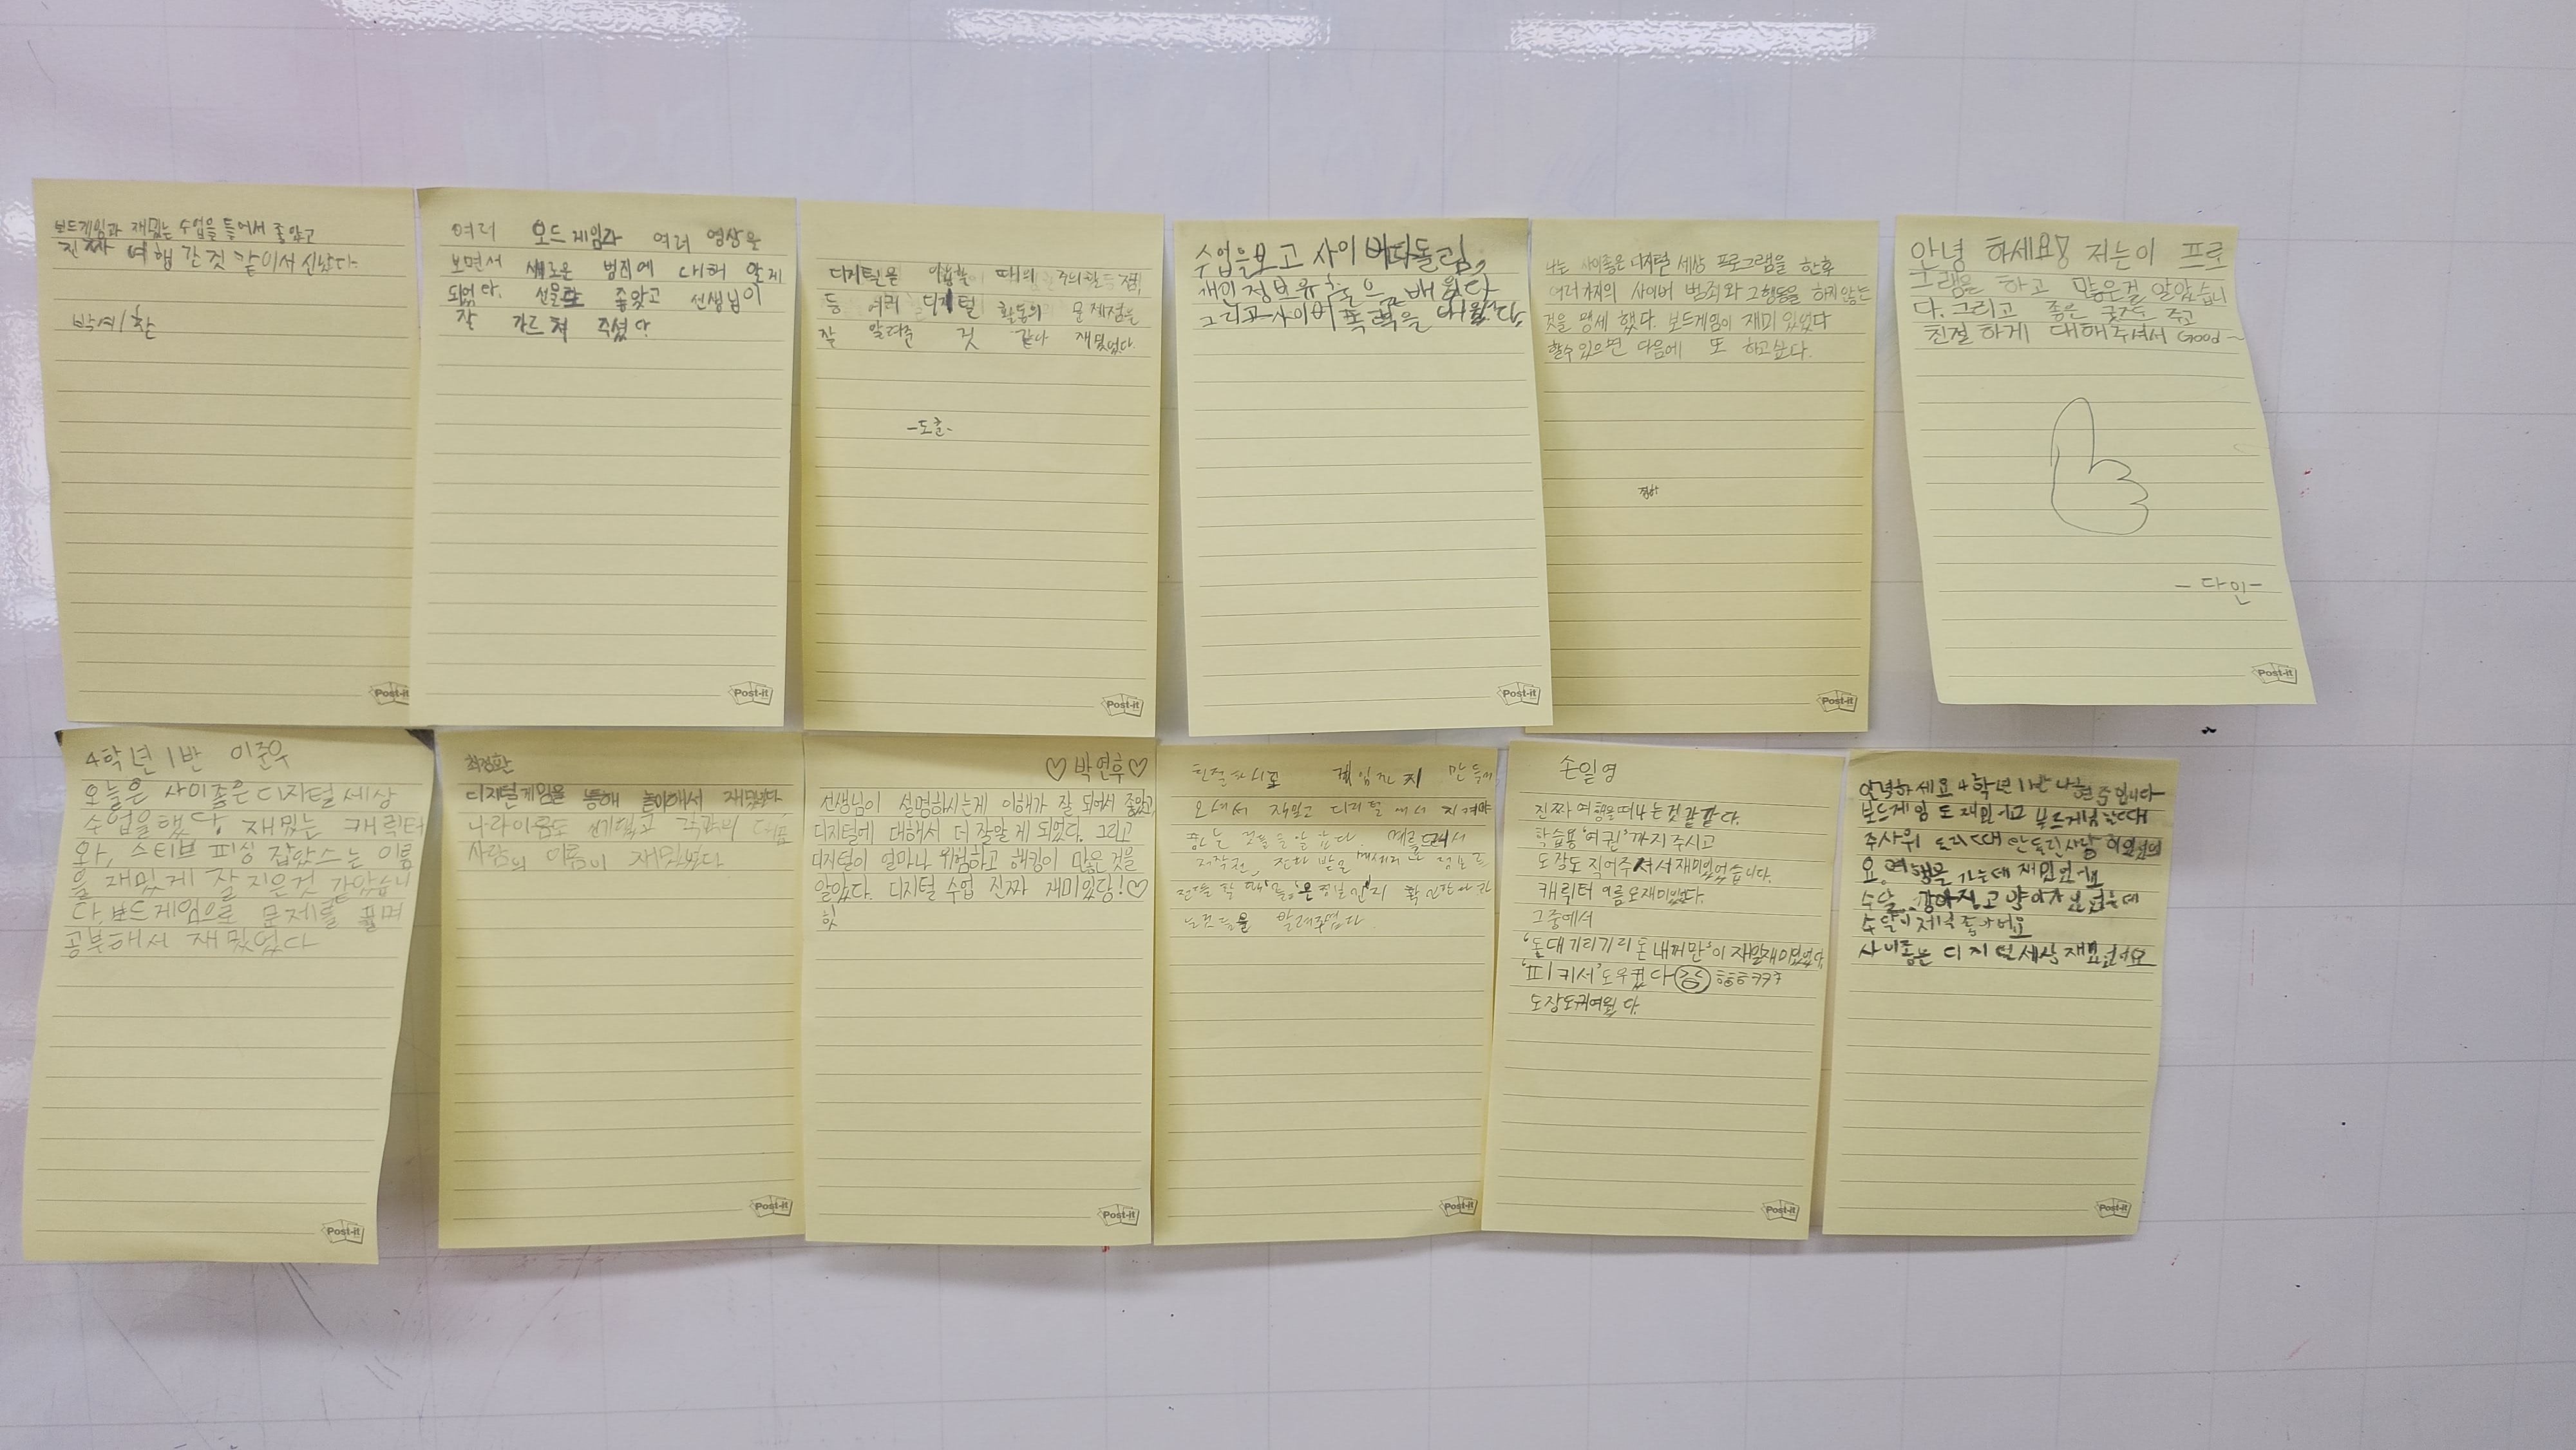 보드게임과 재밌는 수업을 들어서 좋았고
진짜 여행 간것 같이서 신났다.
여러 보드게임과 여러 영상을
보면서 새로운 범죄에 대해 알게
되었다. 선물도 좋았고 선생님이
잘 가르쳐 주셨다.
디지털을 이용할 때의 주의할 점,
등 여러 디지털 활동의 문제점을
잘 알려준 것 같아 재밌었다.
-도훈-
수업을보고 사이버따돌림,
개인정보유출을 배웠다
그리고 사이버폭력을 배웠다.
나는 사이좋은 디지털 세상 프로그램을 한후
여러가지의 사이버 범죄와 그행동을 하지않는
것을 맹세 했다. 보드게임이 재미있었다
할수있으면 다음에 또 하고싶다.
안녕 하세요! 저는이 프로
그램을 하고 많은걸 알았습니
다. 그리고 좋은 굿즈도 주고
친절하게 대해주셔서 Good~
-다인-
Post-it
Post-it
Post-it
Post-it
Post-it
Post-it
4학년 1반 이준우
오늘은 사이좋은 디지털 세상
수업을했다. 재밌는 캐릭터
와, 스티브 피싱 잡았스는 이름
을 재밌게 잘 지은것 같았습니
다. 보드게임으로 문제를 풀며
공부해서 재밌었다
디지털게임을 통해 놀이해서 재밌었다
나라이름도 신기했고 각국의 대표
사람의 이름이 재밌었다
♡박연후♡
선생님이 설명하시는게 이해가 잘 되어서 좋았고,
디지털에 대해서 더 잘알게 되었다. 그리고
디지털이 얼마나 위험하고 해킹이 많은 것을
알았다. 디지털 수업 진짜 재미있당!♡
힛
친절하시고 게임까지 만들어
오셔서 재밌고 디지털에서 지켜야
하는 것들을 알았다. 예를들어서
손일영
진짜여행을떠나는것같다.
학습용'여권'까지주시고
도장도 찍어주셔서재미있었습니다.
캐릭터 이름도재미있었다.
그중에서
'돈대기리기리돈내꺼만'이 재일재미있었다
'피키서'도우꼈다 ㅎㅎㅎㅋㅋㅋ
도장도귀여웠다.
안녕하세요 4학년 1반 나현주입니다
보드게임도 재밌었고 보드게임할때
요. 여행을 가는데 재밌었어요
수달이 제일 좋아어요
사이좋은 디지털세상 재밌었어요
Post-it
Post-it
Post-it
Post-it
Post-it
Post-it